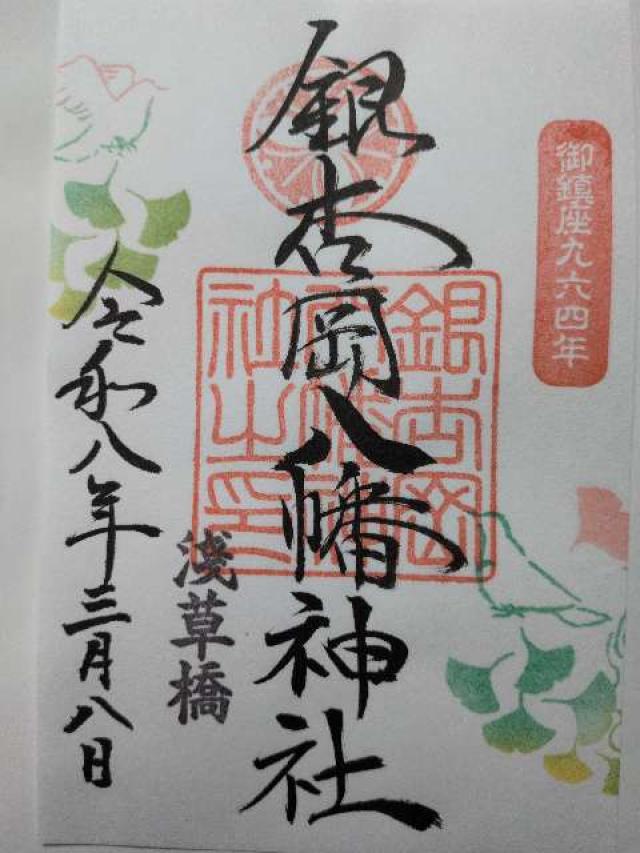 御鎮座九六四年
銀杏岡八幡神社
銀杏岡
八幡神
社之印
淺草橋
令和八年三月八日